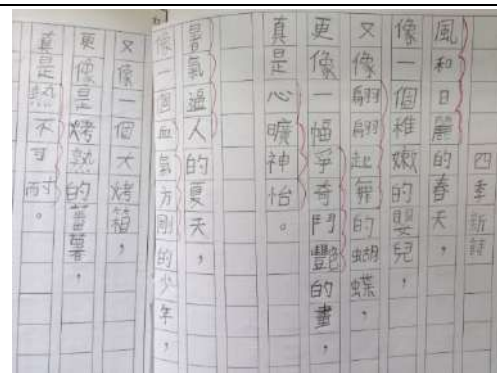 四季新詩
風和日麗的春天，
像一個稚嫩的嬰兒，
又像翩翩起舞的蝴蝶，
更像一幅爭奇鬥豔的畫，
真是心曠神怡。
暑氣逼人的夏天，
像一個血氣方剛的少年，
又像一個大烤箱，
更像是烤熟的蕃薯，
真是熱不可耐。